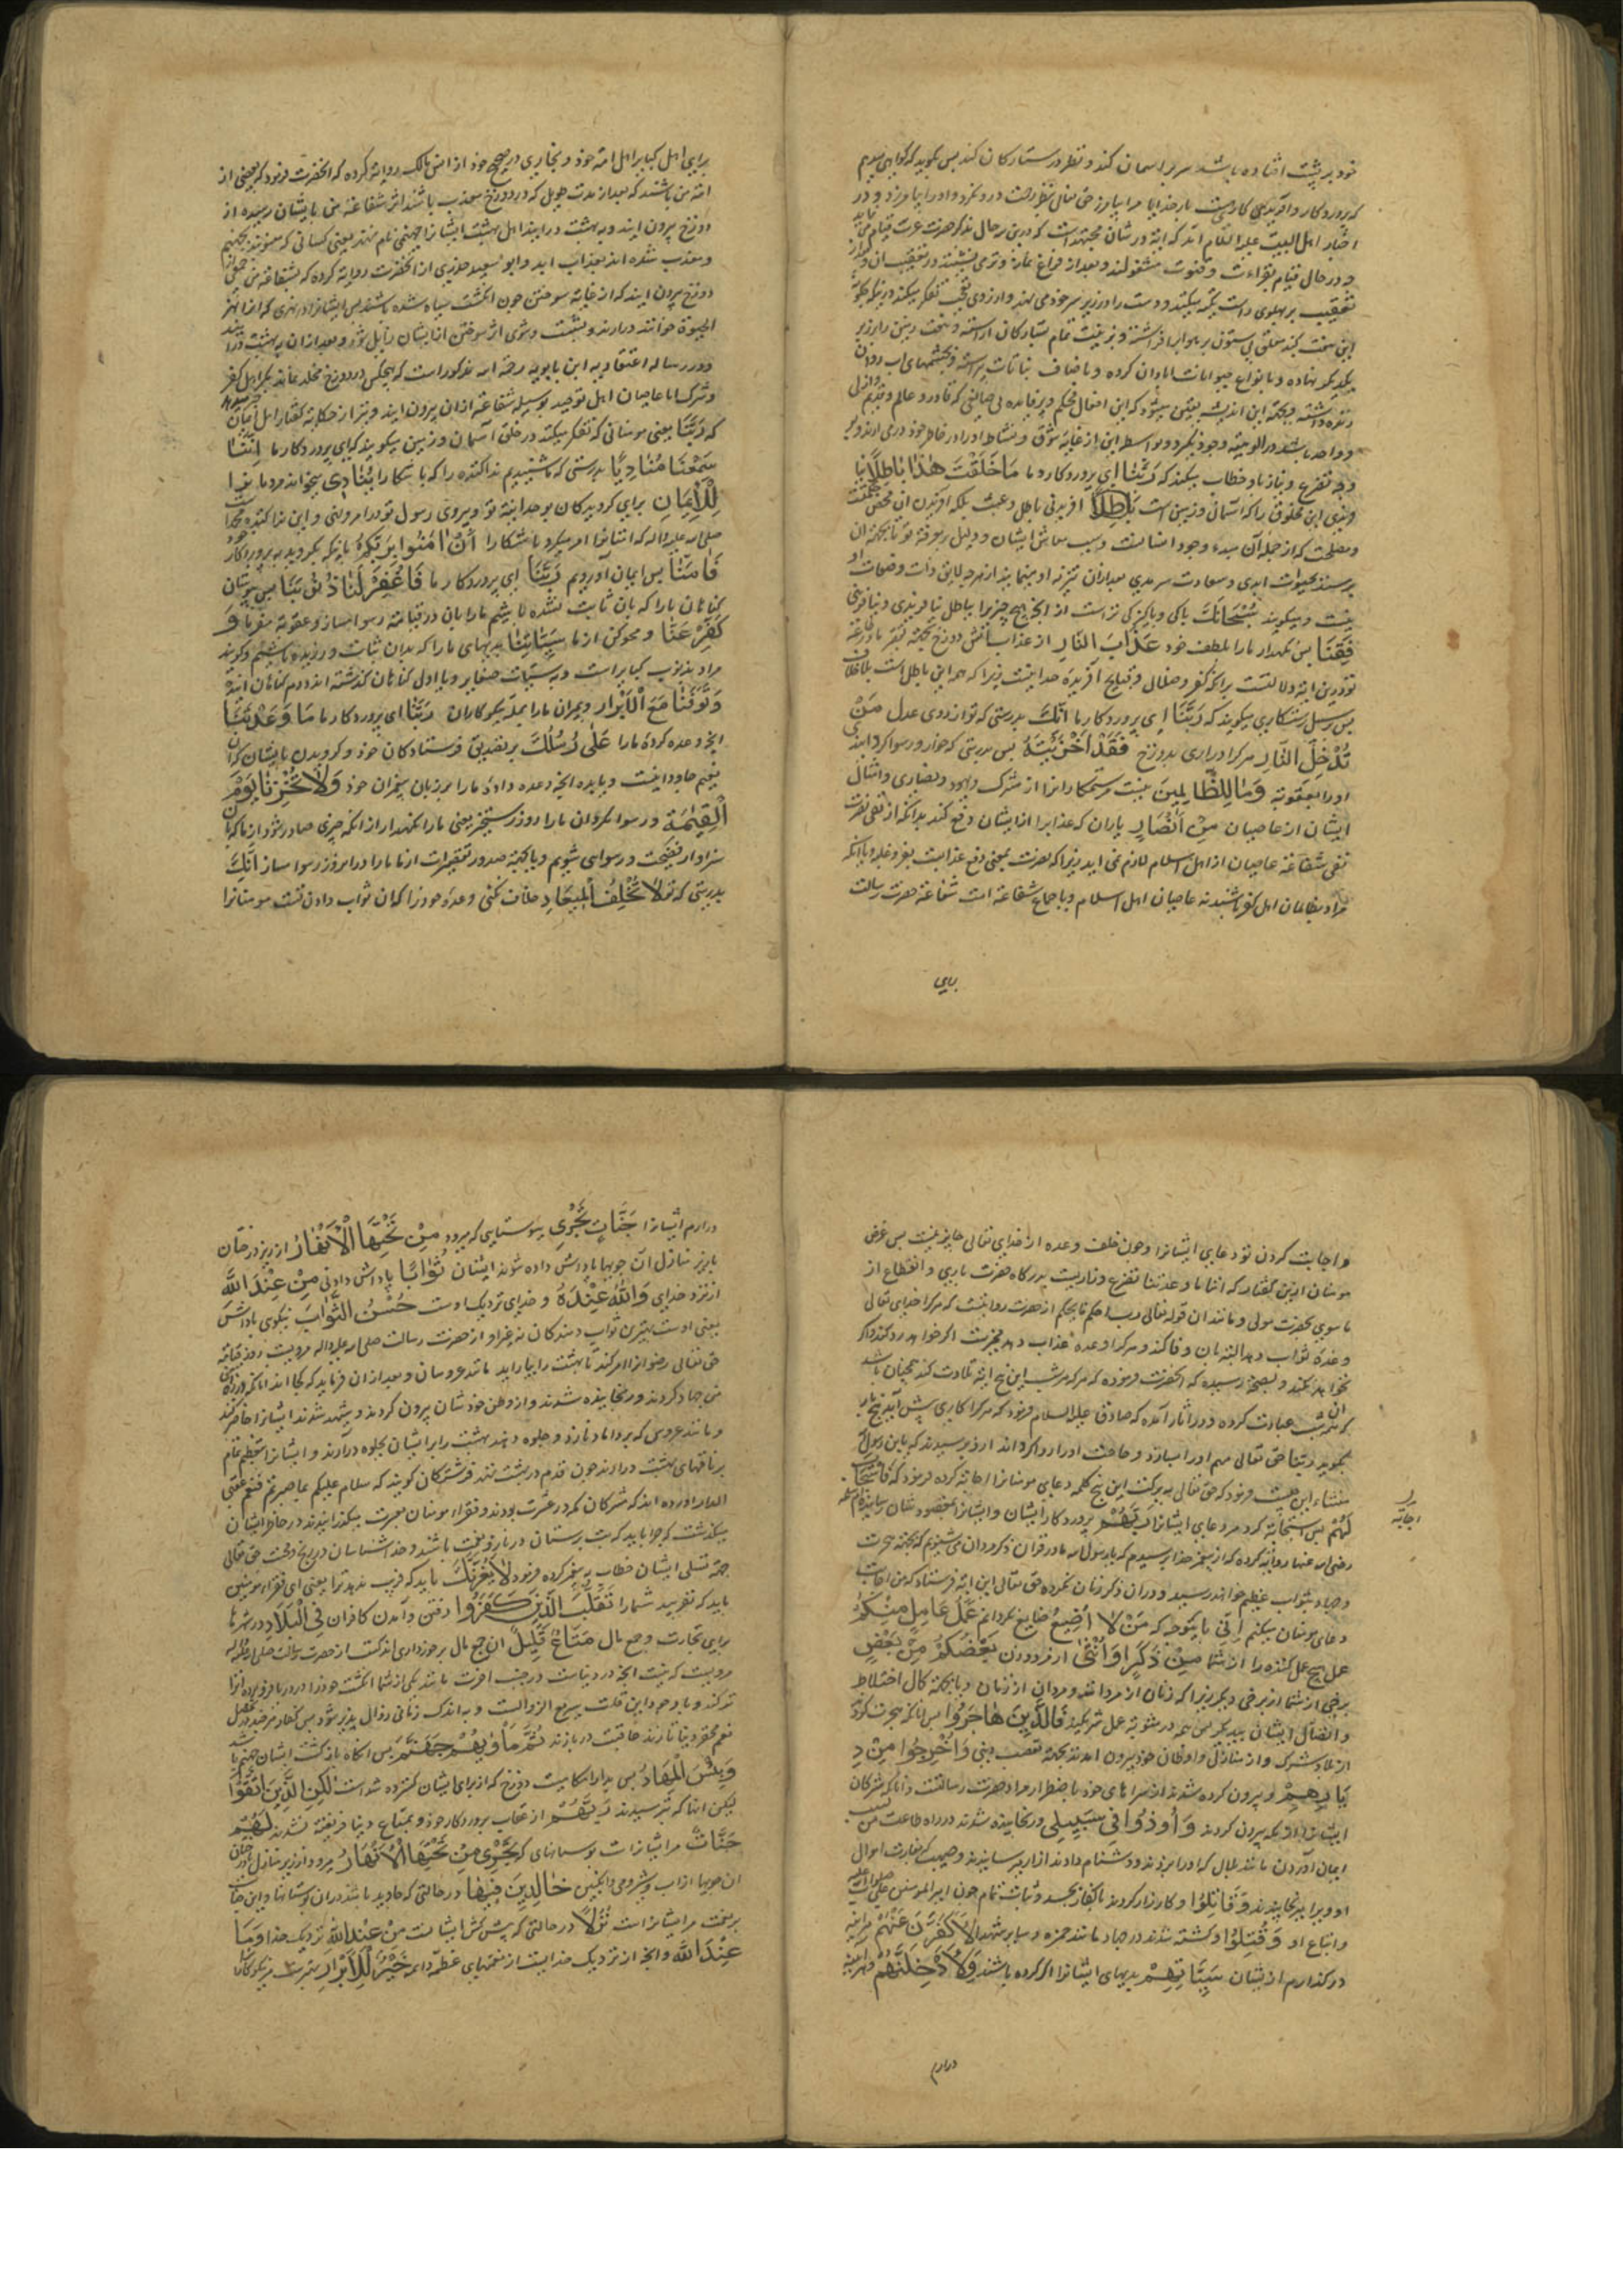 خود بر پشت افتاده باشد سر بر اسمان کند و نظر در ستارکان کند پس بکوید که کواهی میدهم
که پروردکار و آفریدکار
اخبار اهل البیت علیه السلام آمده که این آیه در شان مجتهدانست که درین حال
و در حالی قیام بقراءت و قنوت مشغولند و بعد از فراغ نماز
تعقیب بر پهلوی راست تکیه میکنند و دست را در زیر سر خود می نهند و از روی تعجب تفکر میکنند
این سخت کنبد معلق بی ستون بر هوا بر افراشته و بزینت تمام بستارکان آراسته
یکدیکر نهاده و بانواع حیوانات ابادان کرده و باصناف نباتات و چشمهای اب روان
که این افعال محکم قادر و عالم و قدیم
و واحد باشد در الوهیة و وجود
و تضرع و نیاز باو خطاب میکنند که رَبَّنَا ای پروردکار ما مَا خَلَقْتَ هٰذَا بَاطِلًا
این مخلوق را که آسمان و زمین است بَاطِلًا افریدنی باطل و عبث بلکه
و مصلحت که از جمله آن مبدء وجود انسانست و سبب معاش ایشان و دلیل بمعرفة تو
برسند بحیوات ابدی و سعادت سرمدی بعد از آن تنزیه او
و میکویند سُبْحَانَكَ پاکی و پاکیزکی تراست از انکه هیچ چیز را باطل نیافریدی
فَقِنَا پس نکهدار ما را بلطف خود عَذَابَ النَّارِ از عذاب آتش دوزخ
درین آیة دلالتست بر آنکه کفر و ضلال و قبایح آفریده خدا نیست زیرا که همه این باطل است
پس بر سبیل رستکاری میکویند که رَبَّنَا ای پروردکار ما اِنَّكَ بدرستی که تو از روی عدل مَنْ
تُدْخِلِ النَّارَ هر کرا دراری بدوزخ فَقَدْ اَخْزَيْتَهُ پس بدرستی که خوار و رسوا کردانیدی
او را بعقوبة وَمَا لِلظَّالِمِينَ نیست مر ستمکارانرا از مشرک و یهود و نصاری و امثال
ایشان از عاصیان مِنْ اَنْصَارٍ یاران که عذاب را از ایشان دفع کنند بدانکه از نفی نصرت
نفی شفاعة عاصیان از اهل اسلام لازم نمی اید زیرا که نصرت بمعنی دفع عذابست
مراد بظالمان اهل کفر باشند نه عاصیان اهل اسلام و باجماع شفاعة امت شفاعة حضرت رسالت
برای
برای اهل کبایر اهل امة خود و بخاری در صحیح خود از انس مالک روایة کرده که انحضرت فرمود که بعضی از
امة من باشند که بعد از مدت طویل که در دوزخ معذب باشند اثر شفاعة من بایشان رسیده از
دوزخ بیرون ایند و به بهشت درایند اهل بهشت ایشانرا جهنمی نام نهند یعنی کسانی که
و معذب شده اند بعذاب ابد و ابو سعید خدری از انحضرت روایة کرده که بشفاعة من جمعی از
دوزخ بیرون ایند که از غایة سوختن چون انکشت سیاه شده باشند پس ایشانرا در نهری که انرا نهر
الحیوة خوانند درارند
و در رساله اعتقادیه ابن بابویه رحمة الله مذکور است که هیچکس در دوزخ مخلد نماند مکر اهل کفر
و شرک اما عاصیان اهل توحید بوسیله شفاعة ازان بیرون ایند و نیز از حکایة کفتار اهل ایمان
که رَبَّنَا یعنی مومنانی که تفکر میکنند در خلق آسمان و زمین میکویند که ای پروردکار ما اِنَّنَا
سَمِعْنَا مُنَادِيًا بدرستی که ما شنیدیم ندا کننده را که باشکارا يُنَادِي میخواند مردمانرا
لِلْاِيمَانِ برای کرویدکان بوحدانیة تو و پیروی رسول تو در امر و نهی و این ندا کننده محمد است
صلی الله علیه و اله که انسانرا امر میکرد باشکارا اَنْ اٰمِنُوا بِرَبِّكُمْ بانکه بکروید به پروردکار خود
فَاٰمَنَّا پس ایمان آوردیم رَبَّنَا ای پروردکار ما فَاغْفِرْ لَنَا ذُنُوبَنَا پس بپوشان
کناهان ما را که بان ثابت شده باشیم ما را بان در قیامة رسوا مساز و عقوبة مفرما وَ
كَفِّرْ عَنَّا و محو کن از ما سَيِّئَاتِنَا بدیهای ما را که بدان
مراد بذنوب کبایر است و به سیئات صغایر و یا اول کناهان کذشته اند و دوم کناهان آینده
وَتَوَفَّنَا مَعَ الْاَبْرَارِ و بمیران ما را بجمله نیکوکاران رَبَّنَا ای پروردکار ما مَا وَعَدْتَنَا
انچه وعده کردۀ ما را عَلٰى رُسُلِكَ بر تصدیق فرستادکان خود و کرویدن بایشان
نعیم جاودانیست و یا بده انچه وعده دادۀ ما را بر زبان پیغمبران خود وَلَا تُخْزِنَا يَوْمَ
الْقِيٰمَةِ و رسوا مکردان ما را روز رستخیز یعنی ما را نکهدار از انکه چیزی صادر شود از ما که بان
سزاوار فضیحت و رسوایی شویم و یا بجهة صدور تقصیرات از ما ما را در انروز رسوا مساز اِنَّكَ
بدرستی که تو لَا تُخْلِفُ الْمِيعَادَ خلاف نکنی وعدۀ خود را که ان ثواب دادن تست مومنانرا
و اجابت کردن تو دعای ایشانرا و چون خلف وعده از خدای تعالی جایز نیست پس غرض
مومنان ازین کفتار که اتنا ما وعدتنا تضرع و زاریست بدرکاه حضرت باری و انقطاع از
ما سوی بحضرت مولی و مانند ان قوله تعالی رب احکم بالحق از حضرت روایتست که هر کرا خدای تعالی
وعدۀ ثواب دهد البته بان وفا کند و هر کرا وعده عذاب دهد مخیر است اکر خواهد
نخواهد نکند و بصحة رسیده که انحضرت فرموده که هر که هر شب این پنج ایة تلاوت کند همچنان باشد
که ان شب عبادت کرده و در اثار آمده که صادق علیه السلام فرمود که هر کرا کاری پیش آید پنج بار
بکوید ربنا حق تعالی مهم او را بسازد و حاجت او را روا کرداند از وی پرسیدند که یا ابن رسول الله
منشاء این چیست فرمود که حق تعالی به برکت این پنج کلمه دعای مومنانرا اجابة کرده فرمود که فَاسْتَجَابَ
لَهُمْ پس استجابة کرد مر دعای ایشانرا رَبُّهُمْ پروردکار ایشان و ایشانرا بمقصود شان رسانید
اجابة
رضی الله عنها روایة کرده که از پیغمبر خدا پرسیدم که یا رسول الله ما در قران ذکر مردان می شنویم که بجهة هجرت
و جهاد بثواب عظیم خواهند رسید و دران ذکر زنان نکرده حق تعالی این ایة فرستاد که من اجابت
دعای مومنان میکنم اَنِّي بانکه من لَا اُضِيعُ ضایع نکردانم عَمَلَ عَامِلٍ مِنْكُمْ
عمل هیچ عمل کننده را از شما مِنْ ذَكَرٍ اَوْ اُنْثٰى از مرد و زن بَعْضُكُمْ مِنْ بَعْضٍ
برخی از شما از برخی دیکرید زیرا که زنان از مردانند و مردان از زنان و یا بجهة کمال اختلاط
و اتصال ایشان بیکدیکر پس همه در مثوبة عمل شریکند فَالَّذِينَ هَاجَرُوا پس آنانکه هجرت کردند
از بلاد شرک و از منازل و اوطان خود بیرون امدند بجهة تعصب دینی وَاُخْرِجُوا مِنْ دِ
يَارِهِمْ و بیرون کرده شدند از سراهای خود باضطرار مراد حضرت رسالتست و انانکه مشرکان
ایشانرا از مکه بیرون کردند وَاُوذُوا فِي سَبِيلِي و رنجانیده شدند در راه طاعت من
ایمان آوردن مانند بلال که او را میزدند و دشنام دادند ازار میرسانیدند و صهیب که بغارت اموال
او ویرا میرنجانیدند وَقَاتَلُوا و کارزار کردند با کفار بجد و ثبات تمام چون امیر المومنین علی
و اتباع او وَقُتِلُوا و کشته شدند در جهاد مانند حمزه و سایر شهدا لَاُكَفِّرَنَّ عَنْهُمْ
درکذارم از ایشان سَيِّئَاتِهِمْ بدیهای ایشانرا اکر کرده باشند وَلَاُدْخِلَنَّهُمْ
درارم
درارم ایشانرا جَنَّاتٍ تَجْرِي ببوستانهایی که میرود مِنْ تَحْتِهَا الْاَنْهَارُ از زیر درختان
یا زیر منازل آن جویها پاداش داده شوند ایشان ثَوَابًا پاداش دادنی مِنْ عِنْدِ اللّٰهِ
از نزد خدای وَاللّٰهُ عِنْدَهُ و خدای نزدیک اوست حُسْنُ الثَّوَابِ نیکوی پاداش
یعنی اوست بهترین ثواب دهندکان نه غیر او از حضرت رسالت صلی الله علیه و اله مرویست روز قیامة
حق تعالی رضوانرا امر کند تا بهشت را بیاراید مانند عروسان و بعد ازان فرماید که کجا اند انانکه در راه
من جهاد کردند و رنجانیده شدند و از وطن خودشان بیرون کردند و شهید شدند ایشانرا حاضر کنند
و مانند عروسی که بر داماد نازد و جلوه دهند بهشت را بر ایشان بجلوه درآرند و ایشانرا بتعظیم تمام
بر ناقهای بهشت درارند چون قدم در بهشت نهند فرشتکان کویند که سلام علیکم بما صبرتم فنعم عقبی
الدار اورده اند که مشرکان مکه در عشرت بودند و فقراء مومنان بعسرت میکذرانیدند در خاطر ایشان
میکذشت که چرا باید که بت پرستان در ناز و نعمت باشند و خداشناسان در رنج و محنت حق تعالی
جهة تسلی ایشان خطاب به پیغمبر کرده فرمود لَا يَغُرَّنَّكَ باید که فریب ندهد ترا یعنی ای فقراء مومنین
باید که نفریبد شما را تَقَلُّبُ الَّذِينَ كَفَرُوا رفتن و آمدن کافران فِي الْبِلَادِ در شهرها
برای تجارت و جمع مال مَتَاعٌ قَلِيلٌ ان جمع مال برخورداری اندکست از حضرت رسالت صلی الله علیه و اله
مرویست که نیست انچه در دنیاست در جنب اخرت مانند یکی از شما انکشت خود را در دریا فرو برد و انرا
تر کند و باوجود این قلت سریع الزوالست و به اندک زمانی زوال پذیر شود
ثُمَّ مَأْوٰيهُمْ جَهَنَّمُ پس انکاه بازکشت ایشان جهنم باشد
وَبِئْسَ الْمِهَادُ پس بد ارامکاهیست دوزخ که از برای ایشان کسترده شد است لٰكِنِ الَّذِينَ اتَّقَوْا
لیکن انانکه بترسیدند رَبَّهُمْ از عذاب پروردکار خود و بمتاع دنیا فریفته نشدند لَهُمْ
جَنَّاتٌ مر ایشانراست بوستانهای که تَجْرِي مِنْ تَحْتِهَا الْاَنْهَارُ میرود از زیر منازل
ان جویها از اب و شیر و می و انکبین خَالِدِينَ فِيهَا در حالتی که جاوید باشند دران بوستانها
مر ایشانراست نُزُلًا در حالتی که پیشکش ایشانست مِنْ عِنْدِ اللّٰهِ نزدیک خدا وَمَا
عِنْدَ اللّٰهِ و انچه از نزدیک خداست از نعمتهای عظیمه دایمه خَيْرٌ لِلْاَبْرَارِ بهتر است مر نیکوکارانرا